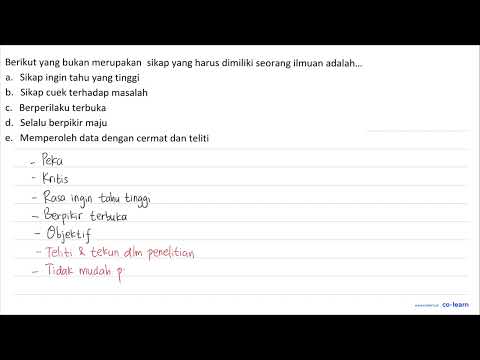 Berikut yang bukan merupakan sikap yang harus dimiliki seorang ilmuan adalah...
a. Sikap ingin tahu yang tinggi
b. Sikap cuek terhadap masalah
c. Berperilaku terbuka
d. Selalu berpikir maju
e. Memperoleh data dengan cermat dan teliti
- Peka
- Kritis
- Rasa ingin tahu tinggi
- Berpikir terbuka
- Objektif
- Teliti & tekun dlm penelitian
- Tidak mudah p
co-learn